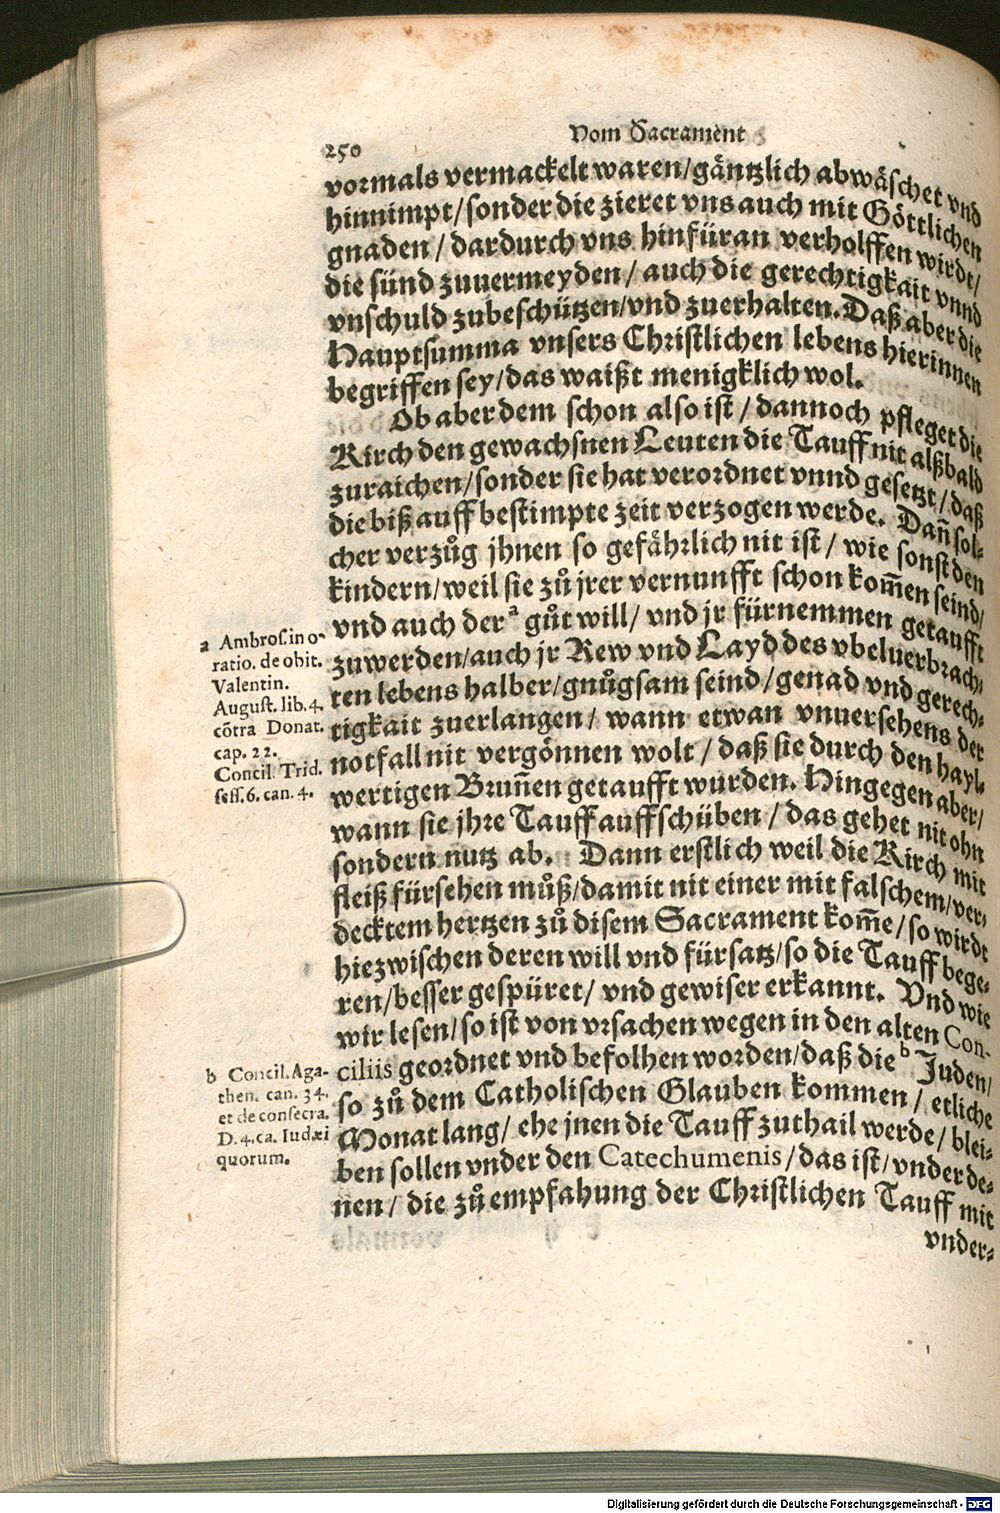 250
Vom Sacrament
vormals vermackelt waren/gäntzlich abwäschet vnd
hinnimpt/sonder die zieret vns auch mit Göttlichen
gnaden/dardurch vns hinfüran verholffen wirdt/
die sünd zuuermeyden/auch die gerechtigkait vnnd
vnschuld zubeschützen/vnd zuerhalten. Daß aber die
Hauptsumma vnsers Christlichen lebens hierinnen
begriffen sey/das waißt menigklich wol.
Ob aber dem schon also ist/dannoch pfleget die
Kirch den gewachsnen Leuten die Tauff nit alßbald
zuraichen/sonder sie hat verordnet vnnd gesetzt/daß
die biß auff bestimpte zeit verzogen werde. Dañ sol-
cher verzůg jhnen so gefährlich nit ist/wie sonst den
kindern/weil sie zů jrer vernunfft schon kom̃en seind/
vnd auch der ᵃ gůt will/vnd jr fürnemmen getaufft
zuwerden/auch jr Rew vnd Layd des vbeluerbrach-
ten lebens halber/gnůgsam seind/genad vnd gerech-
tigkait zuerlangen/wann etwan vnuersehens der
notfall nit vergönnen wolt/daß sie durch den hayl-
wertigen Bruñen getaufft wurden. Hingegen aber/
wann sie jhre Tauff auffschüben/das gehet nit ohn
sondern nutz ab. Dann erstlich weil die Kirch mit
fleiß fürsehen můß/damit nit einer mit falschem/ver-
decktem hertzen zů disem Sacrament kom̃e/so wirdt
hiezwischen deren will vnd fürsatz/so die Tauff bege-
ren/besser gespüret/vnd gewiser erkannt. Vnd wie
wir lesen/so ist von vrsachen wegen in den alten Con-
ciliis geordnet vnd befolhen worden/daß die ᵇ Juden/
so zů dem Catholischen Glauben kommen/etliche
Monat lang/ehe jnen die Tauff zuthail werde/blei-
ben sollen vnder den Catechumenis/das ist/vnder de-
nen/die zů empfahung der Christlichen Tauff mit
vnder-
a Ambros. in o-
ratio. de obit.
Valentin.
August. lib. 4.
cõtra Donat.
cap. 22.
Concil. Trid.
sess. 6. can. 4.
b Concil. Aga-
then. can. 34.
et de consecra.
D. 4. ca. Iudæi
quorum.
Digitalisierung gefördert durch die Deutsche Forschungsgemeinschaft - DFG